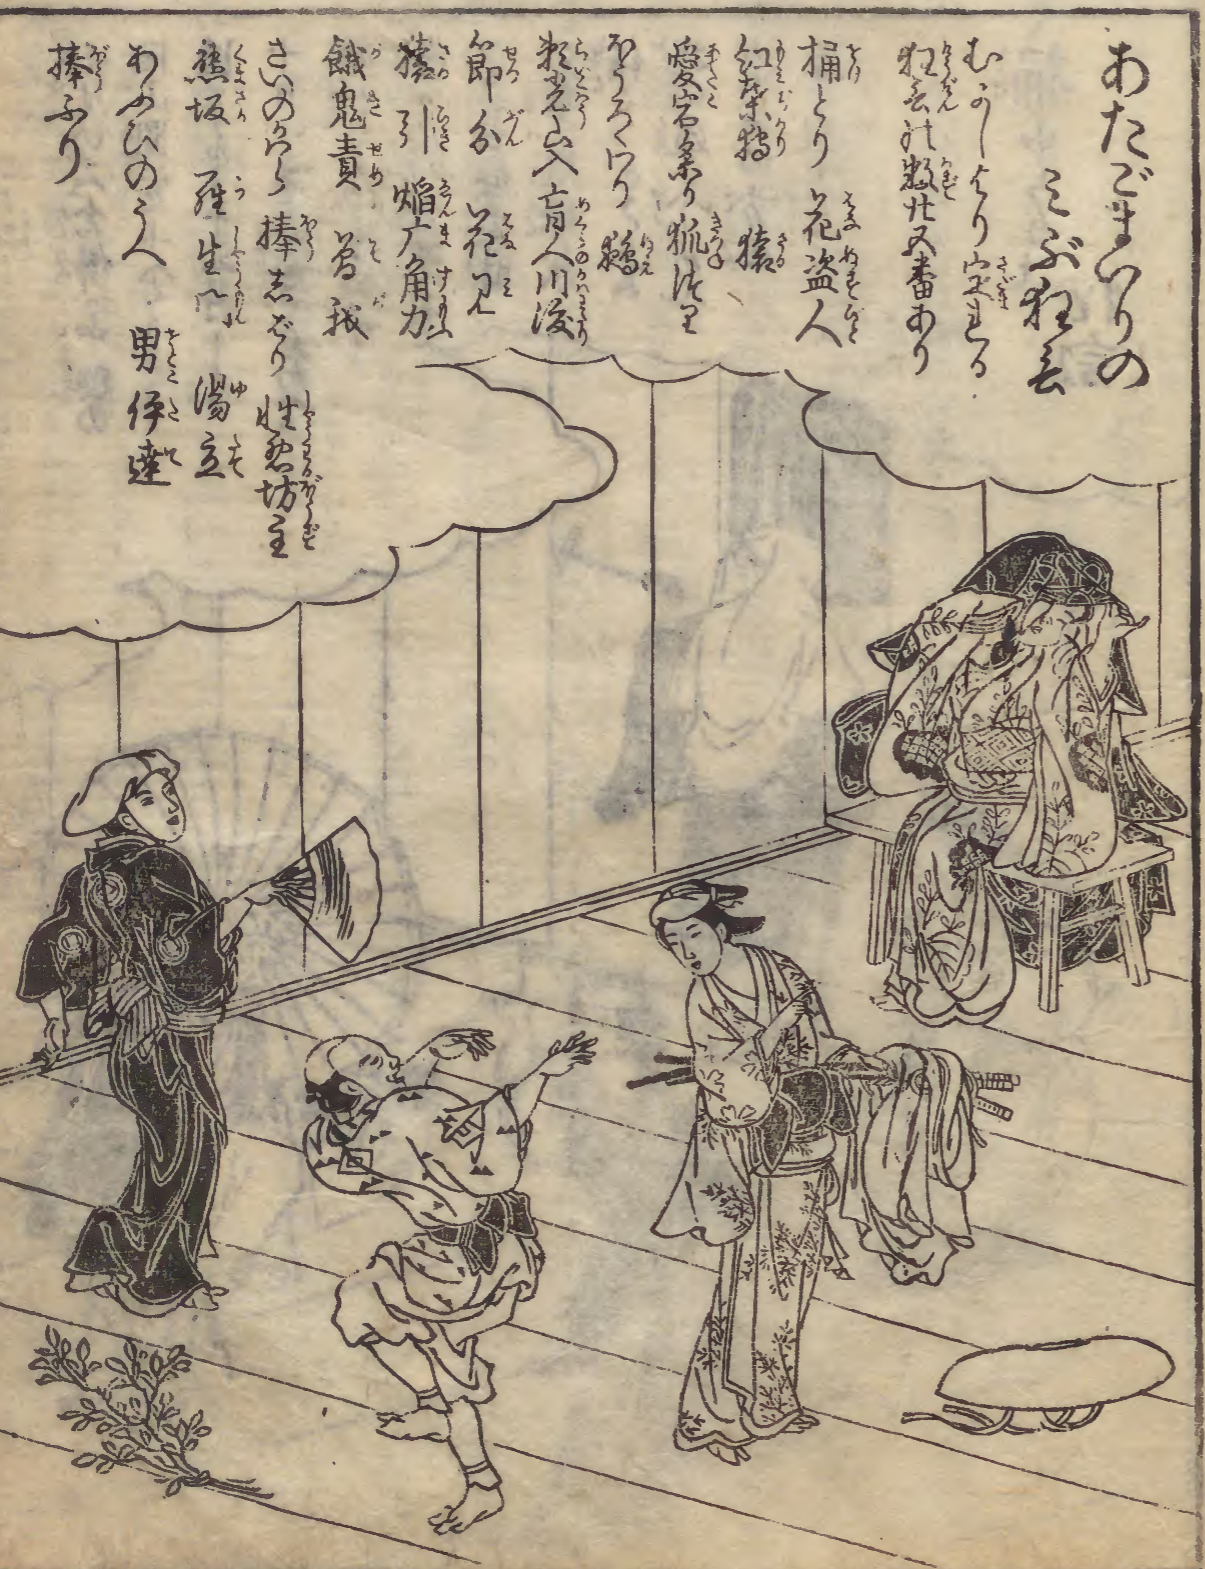 あたごまいりの
みぶ狂言
むかしより定れる
狂言の数廿五番あり
桶とり 花盗人
紅葉狩 猿
愛宕参り 狐つり
ほうろくわり 鵺
頼光山入 盲人川渡
節分 花見
猿引 焔广角力
餓鬼責 曽我
さいのかはら 捧しばり 性悪坊主
熊坂 羅生門 湯立
あふひのうへ 男伊達
捧ふり